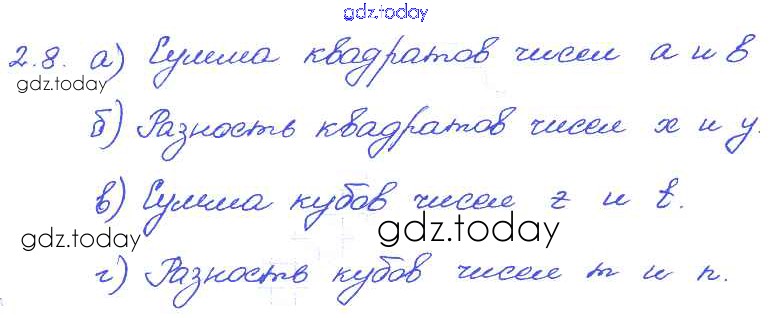 gdz.today
2.8. а) Сумма квадратов чисел a и b
gdz.today
б) Разность квадратов чисел x и y.
в) Сумма кубов чисел z и t.
gdz.today gdz.today
г) Разность кубов чисел m и n.